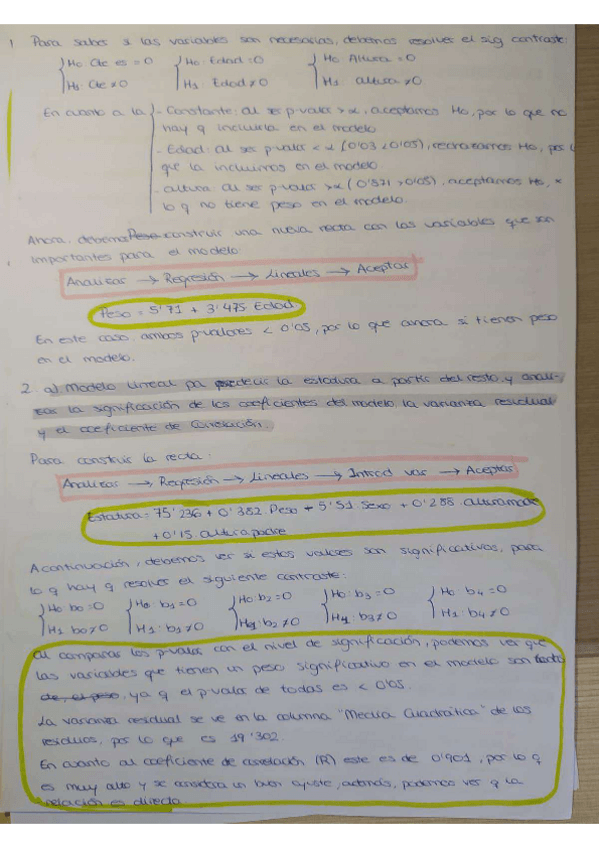 1 Para saber si las variables son necesarias, debemos resolver el sig contraste:
{Ho: Cte es = 0 {Ho: Edad = 0 {Ho: Altura = 0
{H1: Cte ≠ 0 {H1: Edad ≠ 0 {H1: altura ≠ 0
En cuanto a la { - Constante: al ser p valor > α, aceptamos Ho, por lo que no
hay q incluirla en el modelo
- Edad: al ser p valor < α (0'03 < 0'05), rechazamos Ho, por l
que la incluimos en el modelo
- altura: al ser p valor > α (0'571 > 0'05), aceptamos Ho, x
lo q no tiene peso en el modelo.
Ahora, debemos construir una nueva recta con las variables que son
importantes para el modelo:
Analizar → Regresión → Lineales → Aceptar
Peso = 5'71 + 3'475 Edad
En este caso, ambos p valores < 0'05, por lo que ahora si tienen peso
en el modelo.
2. a) Modelo lineal pa predecir la estadura a partir del resto, y anali-
zar la significación de los coeficientes del modelo, la varianza residual
y el coeficiente de correlación.
Para construir la recta:
Analizar → Regresión → Lineales → Introd var → Aceptar
Estatura = 75'236 + 0'382 Peso + 5'51 Sexo + 0'288 altura madre
+ 0'15 altura padre
A continuación, debemos ver si estos valores son significativos, para
lo q hay q resolver el siguiente contraste:
{Ho b0 = 0 {Ho b1 = 0 {Ho: b2 = 0 {Ho: b3 = 0 {Ho b4 = 0
{H1 b0 ≠ 0 {H1: b1 ≠ 0 {H1 b2 ≠ 0 {H1: b3 ≠ 0 {H1: b4 ≠ 0
Al comparar los p valor con el nivel de significación, podemos ver que
las variables que tienen un peso significativo en el modelo son
de, el peso, ya q el p valor de todas es < 0'05.
La varianza residual se ve en la columna "Media Cuadrática" de los
residuos, por lo que es 19'302.
En cuanto al coeficiente de correlación (R) este es de 0'901, por lo q
es muy alto y se considera un buen ajuste, además, podemos ver q la
relación es directa.